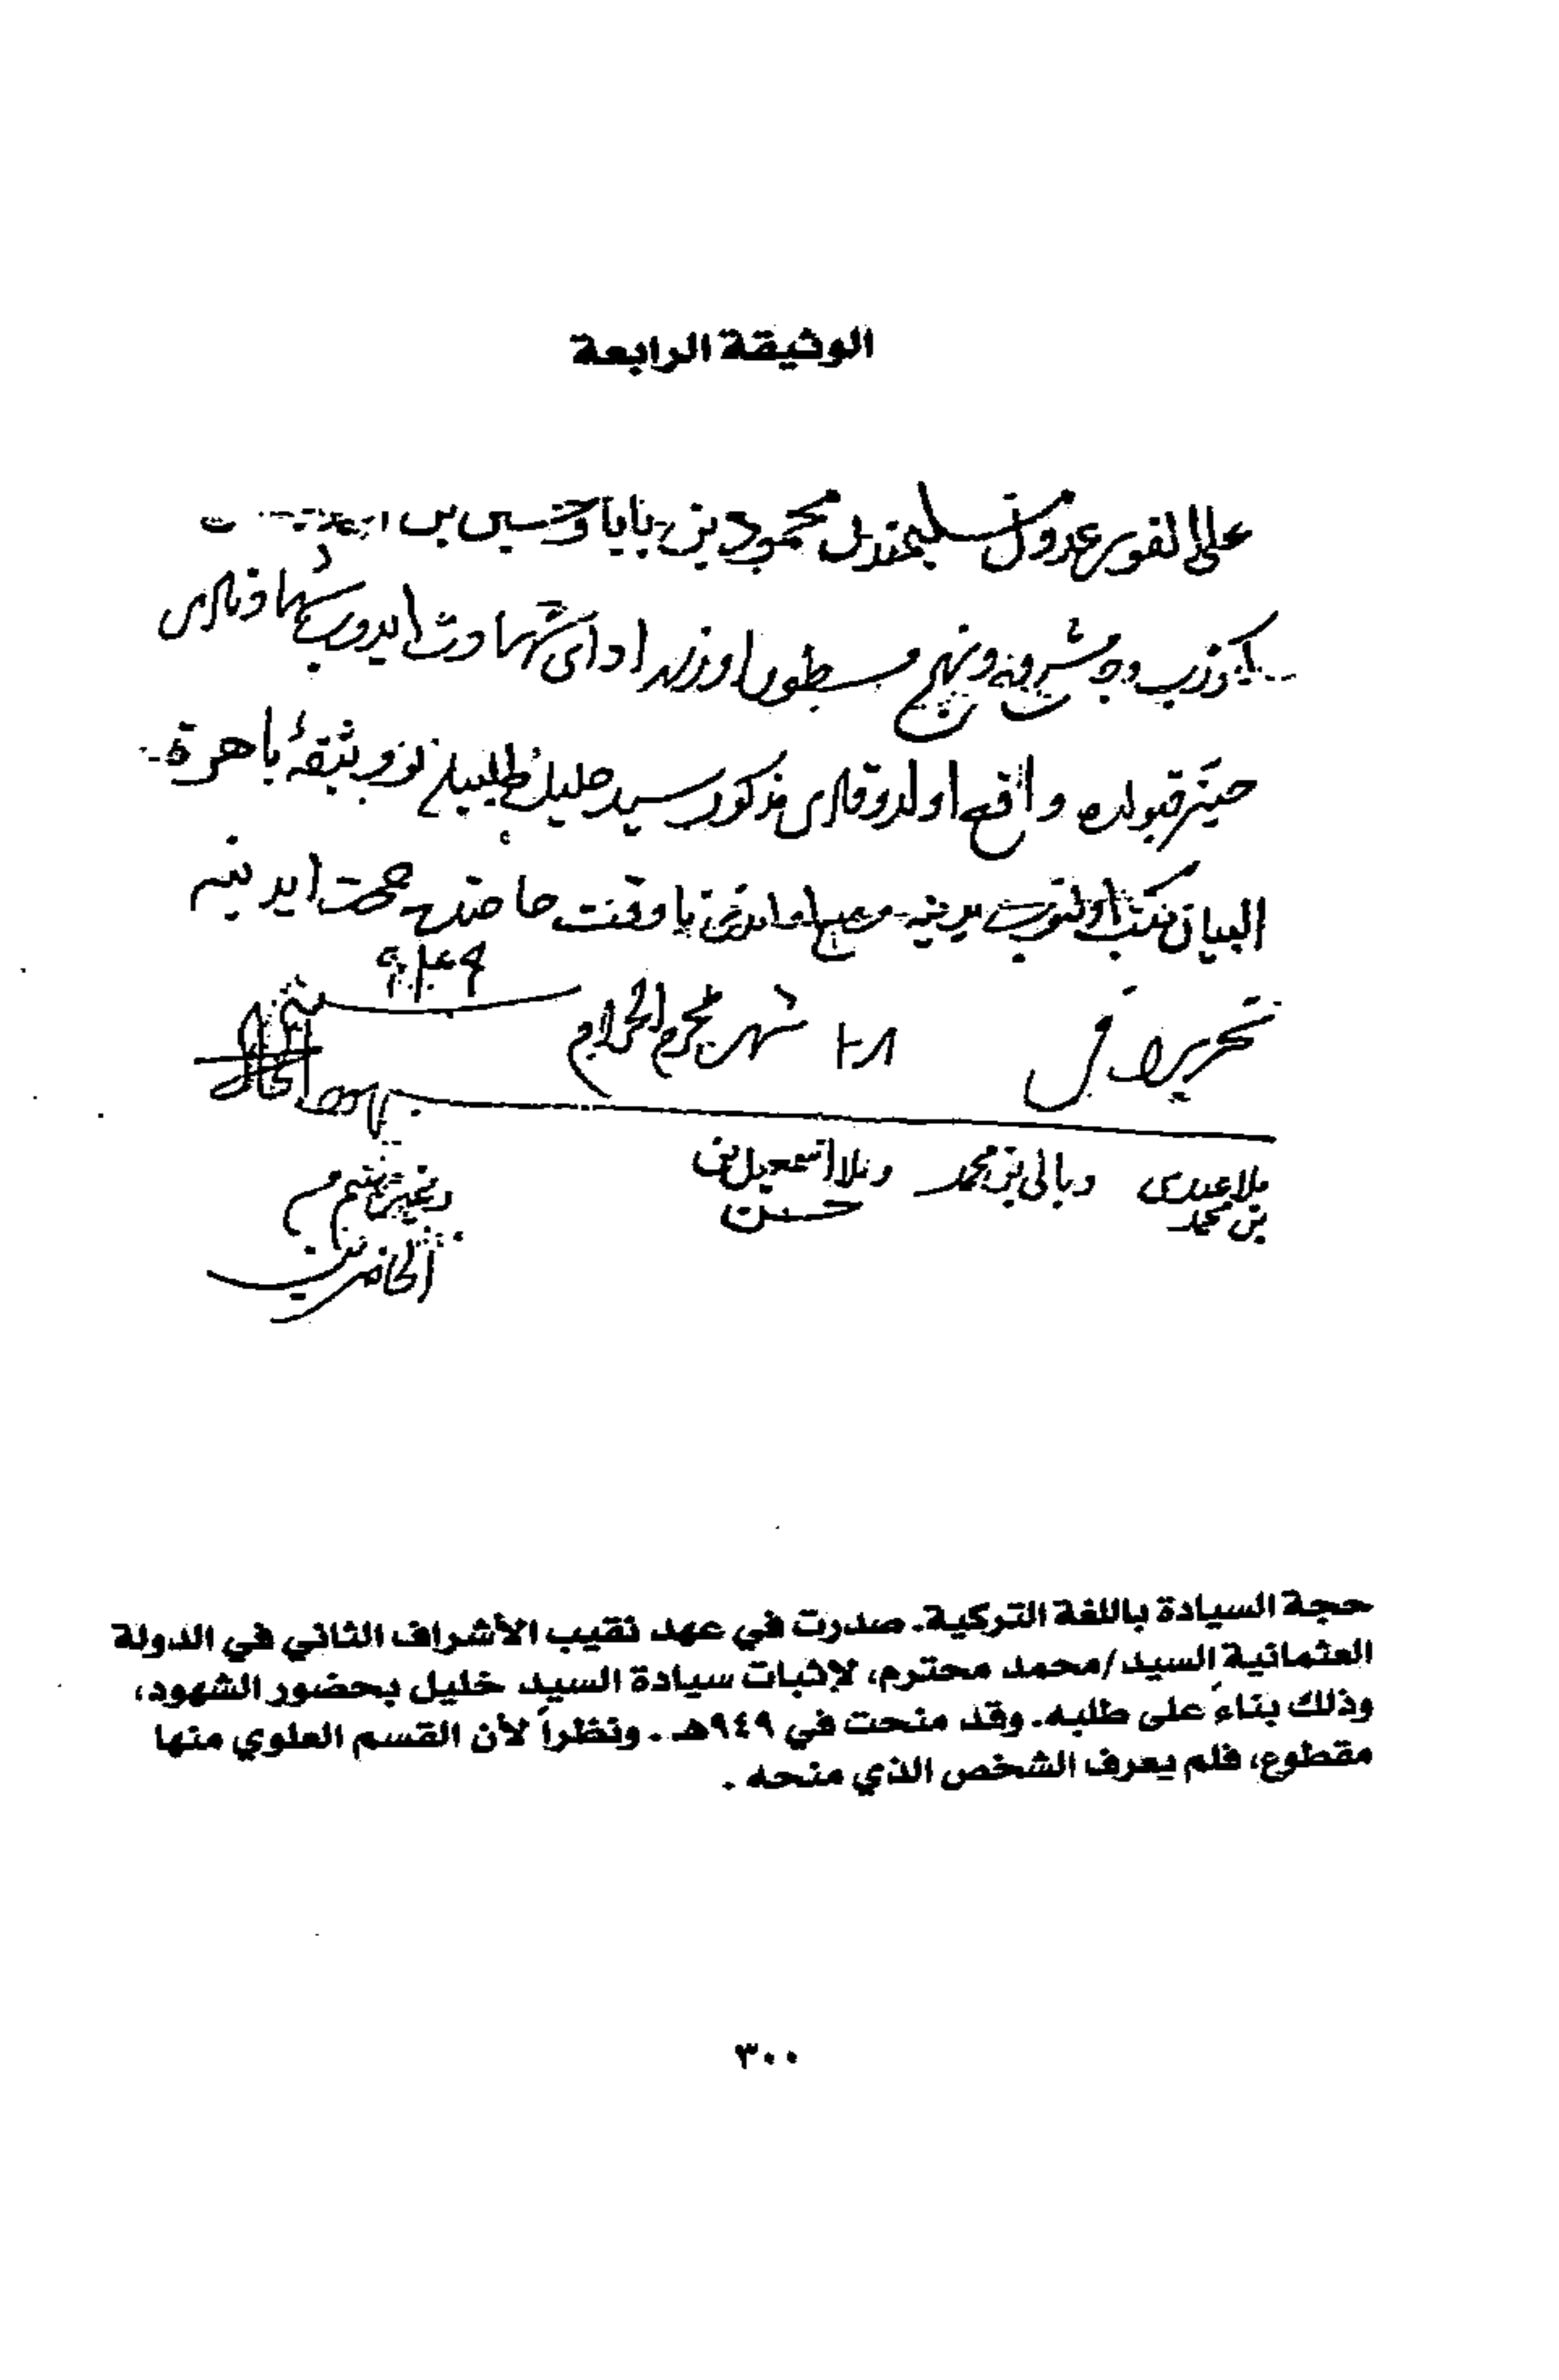 الوثيقة الرابعة
على الفور عدول مسلميندن محمود بن بابا وحسين بن
مسطور اوزره اداى شهادت ايدوب شهادتلرى
حيز قبولده واقع اولدوقلرى مذكور سيد خليل طلبيله بو وثيقۀ باهرة
البيان كتب اولنوب يدينه وقت حاجتده حجت ايدينه
تحريرا فى ١٨ شهر محرم الحرام سنه ٩٤٩
شهود الحال
ملا عبدى بن محمد وبالى بن محمد وملا اسمعيل بن حسن وغيرهم من الحاضرين
حجة السيادة باللغة التركية. صدرت في عهد نقيب الأشراف الثاني في الدولة
العثمانية السيد/محمد محترم، لإثبات سيادة السيد خليل بحضور الشهود،
وذلك بناءً على طلبه. وقد منحت في ٩٤٩هـ. ونظراً لأن القسم العلوي منها
مقطوع، فلم يعرف الشخص الذي منحه.
٣٠٠